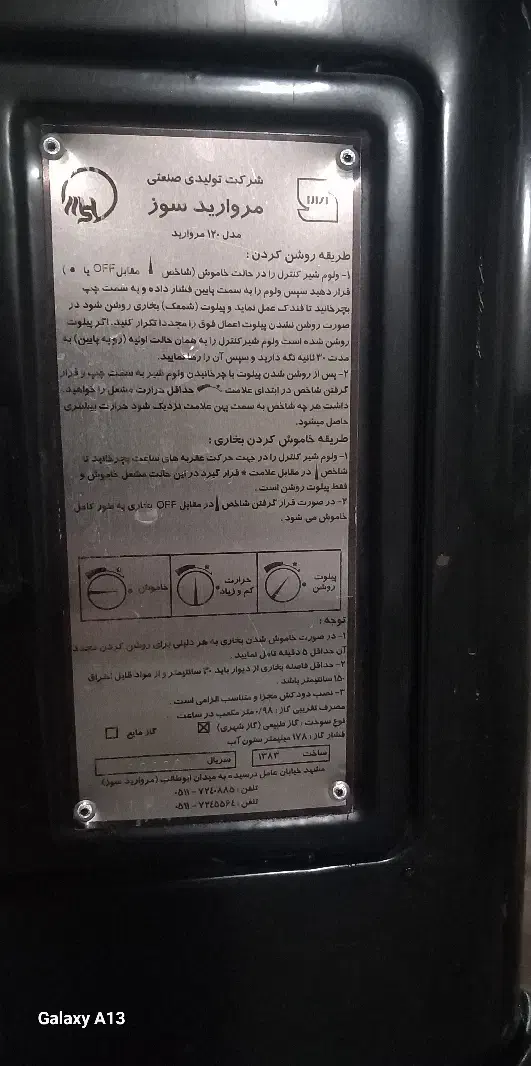 شرکت تولیدی صنعتی
مروارید سوز
مدل ۱۲۰ مروارید
طریقه روشن کردن :
۱- ولوم شیر کنترل را در حالت خاموش (شاخص مقابل OFF یا ●)
قرار دهید سپس ولوم را به سمت پایین فشار داده و به سمت چپ
بچرخانید تا فندک عمل نماید و پیلوت (شمعک) بخاری روشن شود در
صورت روشن نشدن پیلوت اعمال فوق را مجددا تکرار کنید. اگر پیلوت
روشن شده است ولوم شیر کنترل را به همان حالت اولیه (رو به پایین) به
مدت ۳۰ ثانیه نگه دارید و سپس آن را رها نمایید.
۲- پس از روشن شدن پیلوت با چرخانیدن ولوم شیر به سمت چپ و قرار
گرفتن شاخص در ابتدای علامت حداقل حرارت مشعل را خواهید
داشت هر چه شاخص به سمت پهن علامت نزدیک شود حرارت بیشتری
حاصل میشود.
طریقه خاموش کردن بخاری :
۱- ولوم شیر کنترل را در جهت حرکت عقربه های ساعت بچرخانید تا
شاخص در مقابل علامت * قرار گیرد در این حالت مشعل خاموش و
فقط پیلوت روشن است.
۲- در صورت قرار گرفتن شاخص در مقابل OFF بخاری به طور کامل
خاموش می شود.
پیلوت روشن
حرارت کم و زیاد
خاموش
توجه :
۱- در صورت خاموش شدن بخاری به هر دلیلی برای روشن کردن مجدد
آن حداقل ۵ دقیقه تامل نمایید.
۲- حداقل فاصله بخاری از دیوار باید ۳۰ سانتیمتر و از مواد قابل احتراق
۱۵۰ سانتیمتر باشد.
۳- نصب دودکش مجزا و متناسب الزامی است.
مصرف تقریبی گاز : ۰/۹۸ متر مکعب در ساعت
نوع سوخت : گاز طبیعی (گاز شهری) ☒ گاز مایع ☐
فشار گاز : ۱۷۸ میلیمتر ستون آب
ساخت ۱۳۸۳ سریال
مشهد خیابان عامل نرسیده به میدان ابوطالب (مروارید سوز)
تلفن : ۷۲۴۰۸۸۵ - ۰۵۱۱
تلفن : ۷۲۴۵۵۶۴ - ۰۵۱۱
Galaxy A13